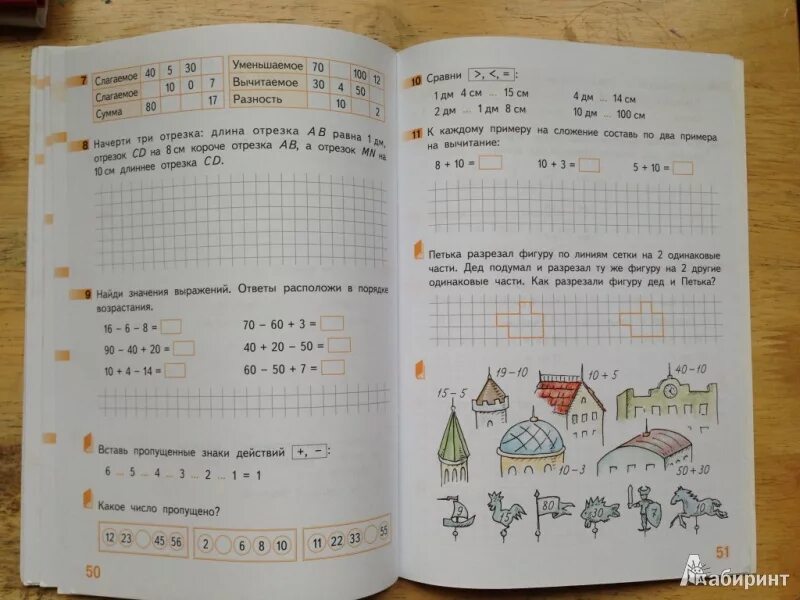 7
Слагаемое 40 5 30
Слагаемое 10 0 7
Сумма 80 17
Уменьшаемое 70 100 12
Вычитаемое 30 4 50
Разность 10 2
8 Начерти три отрезка: длина отрезка AB равна 1 дм,
отрезок CD на 8 см короче отрезка AB, а отрезок MN на
10 см длиннее отрезка CD.
9 Найди значения выражений. Ответы расположи в порядке
возрастания.
16 − 6 − 8 = 70 − 60 + 3 =
90 − 40 + 20 = 40 + 20 − 50 =
10 + 4 − 14 = 60 − 50 + 7 =
Вставь пропущенные знаки действий +, − :
6 ... 5 ... 4 ... 3 ... 2 ... 1 = 1
Какое число пропущено?
12 23 45 56 2 6 8 10 11 22 33 55
50
10 Сравни >, <, = :
1 дм 4 см ... 15 см 4 дм ... 14 см
2 дм ... 1 дм 8 см 10 дм ... 100 см
11 К каждому примеру на сложение составь по два примера
на вычитание:
8 + 10 = 10 + 3 = 5 + 10 =
Петька разрезал фигуру по линиям сетки на 2 одинаковые
части. Дед подумал и разрезал ту же фигуру на 2 другие
одинаковые части. Как разрезали фигуру дед и Петька?
15 − 5 19 − 10 10 + 5 40 − 10
10 − 3 50 + 30
9 15 80 30 7 10
51
Лабиринт